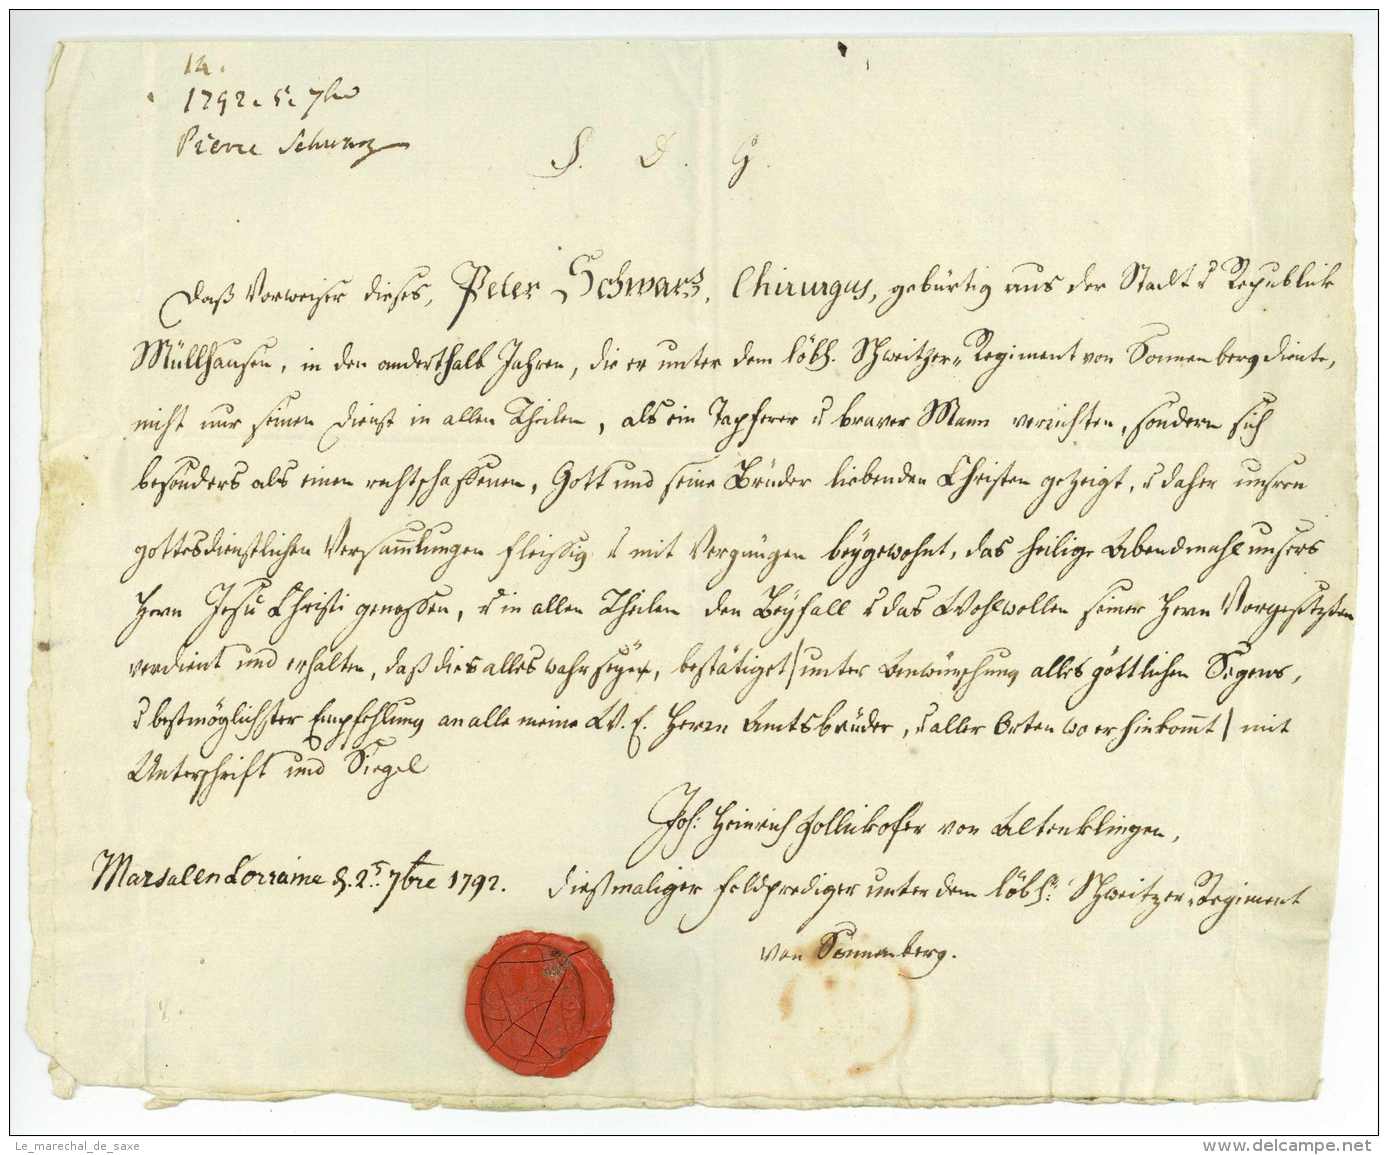 14.
1792. 5. 7bre
Pierre Schwarz
S. D. G.
Daß Vorweiser dieses, Peter Schwarz, Chirurgus, gebürtig aus der Stadt u Republick
Müllhausen, in den anderthalb Jahren, die er unter dem löbl. Schweitzer-Regiment von Sonnenberg diente,
nicht nur seinen Dienst in allen Theilen, als ein Tapferer u braver Mann verrichten, sondern sich
besonders als einen rechtschaffenen, Gott und seine Brüder liebenden Christen gezeigt, u daher unsren
gottesdienstlichen Versam̄lungen fleissig u mit Vergnügen beygewohnt, das heilige Abendmahl unsers
Herrn Jesu Christi genossen, u in allen Theilen den Beyfall u das Wohlwollen seiner Herrn Vorgesetzten
verdient und erhalten, daß dies alles wahr seye, bestätiget / unter Anwünschung alles göttlichen Segens,
u bestmöglichster Empfehlung an alle meine W. E. Herrn Amtsbrüder, u aller Orten wo er hinkom̄t / mit
Unterschrift und Siegel
Joh: Heinrich Zollikofer von Altenklingen,
Marsal en Lorraine d. 25. 7bre 1792. dießmaliger Feldprediger unter dem löbl: Schweitzer-Regiment
von Sonnenberg.
Le_marechal_de_saxe
delcampe.net